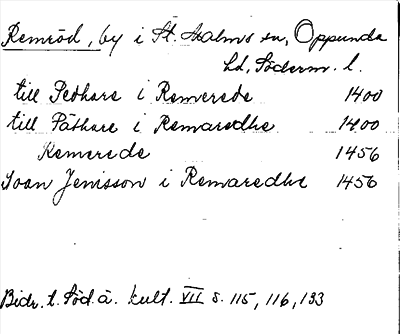 Remröd, by i St. Malms sn, Oppunda
hd, Söderm. l.
till Pedhare i Remerede 1400
till Päthare i Remaredhe 1400
Remerede 1456
Joan Jenisson i Remaredhe 1456
Bidr. t. Söd. ä. kult. VII s. 115, 116, 133